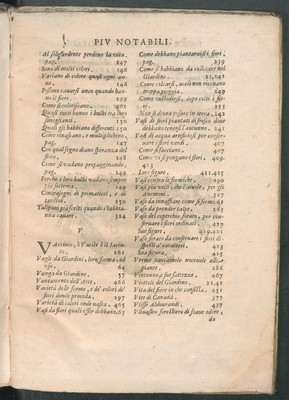 PIV NOTABILI.
Al selseardente perdono la vita,
pag. 247
Sono di molti colori. 146
Variano di colore quasi ogni anno. 146
Possono cavarsi anco quando hanno
il fiore. 299
Come si colorisano. 401
Quali sono i bulbi
simiglianti. 150
Quali gli habbiano differenti. 150
Come renascano, e moltiplichino,
pag. 147
Con qual segno diano speranza del
fiore. 148
Come si vadano propagginando,
pag. 149
Perche i loro bulbi vadano sempre
più sotterra. 149
Contrasegni di primaticci, e di
tardivi. 150
Tulipani più scelti quando s'habbiano
a cavare. 314
V
Vaccinio, è l'uccelle il latino.
161
Vagli da Giardino, lor forma, ed
64
Vanga da Giardino. 57
Vantamento dell'Arte. 466
Varietà delle forme, e de' colori de'
fiori donde proceda. 297
Varietà di colori onde nasca. 465
Vasi da fiori quali esser debbano. 63
Come debbano piantarvisi i fiori,
pag. 239
Come si habbiano da collocare nel
Giardino. 21,241
Come colcarsi, acciò non ricevano
troppa pioggia. 249
Come custodirsi, dopo colti i fiori.
255
Non si devono posare in terra. 242
Vasi di fiori piantati di fresco dove
debban tenersi l'autunno. 241
Vasi di acqua artificiosi per conservare
i fiori verdi. 407
Come si facciano. 407
Come vi si pongano i fiori. 409
413
Lor figure. 411.415
Vasi contra le formiche. 290
Vasi più utili, che l'animale, per gli
Anemoni. 327
Vasi da innaffiare come si formi. 61
Vaso da prender talpe. 261
Vaso del coperchio forato, per conservare
i fiori ordinati. 419
Sue figure. 419.421
Vaso forato da conservare i fiori di
qualità. 423
Sua figura. 425
Verme zuccaiuolo nocevole alle
piante. 286
Vertunno, e sue fattezze. 467
Viottoli del Giardino. 21.41
Vita del fiore in che consista. 251
Vite di Canadà. 377
Ulisse Aldourandi. 437
da